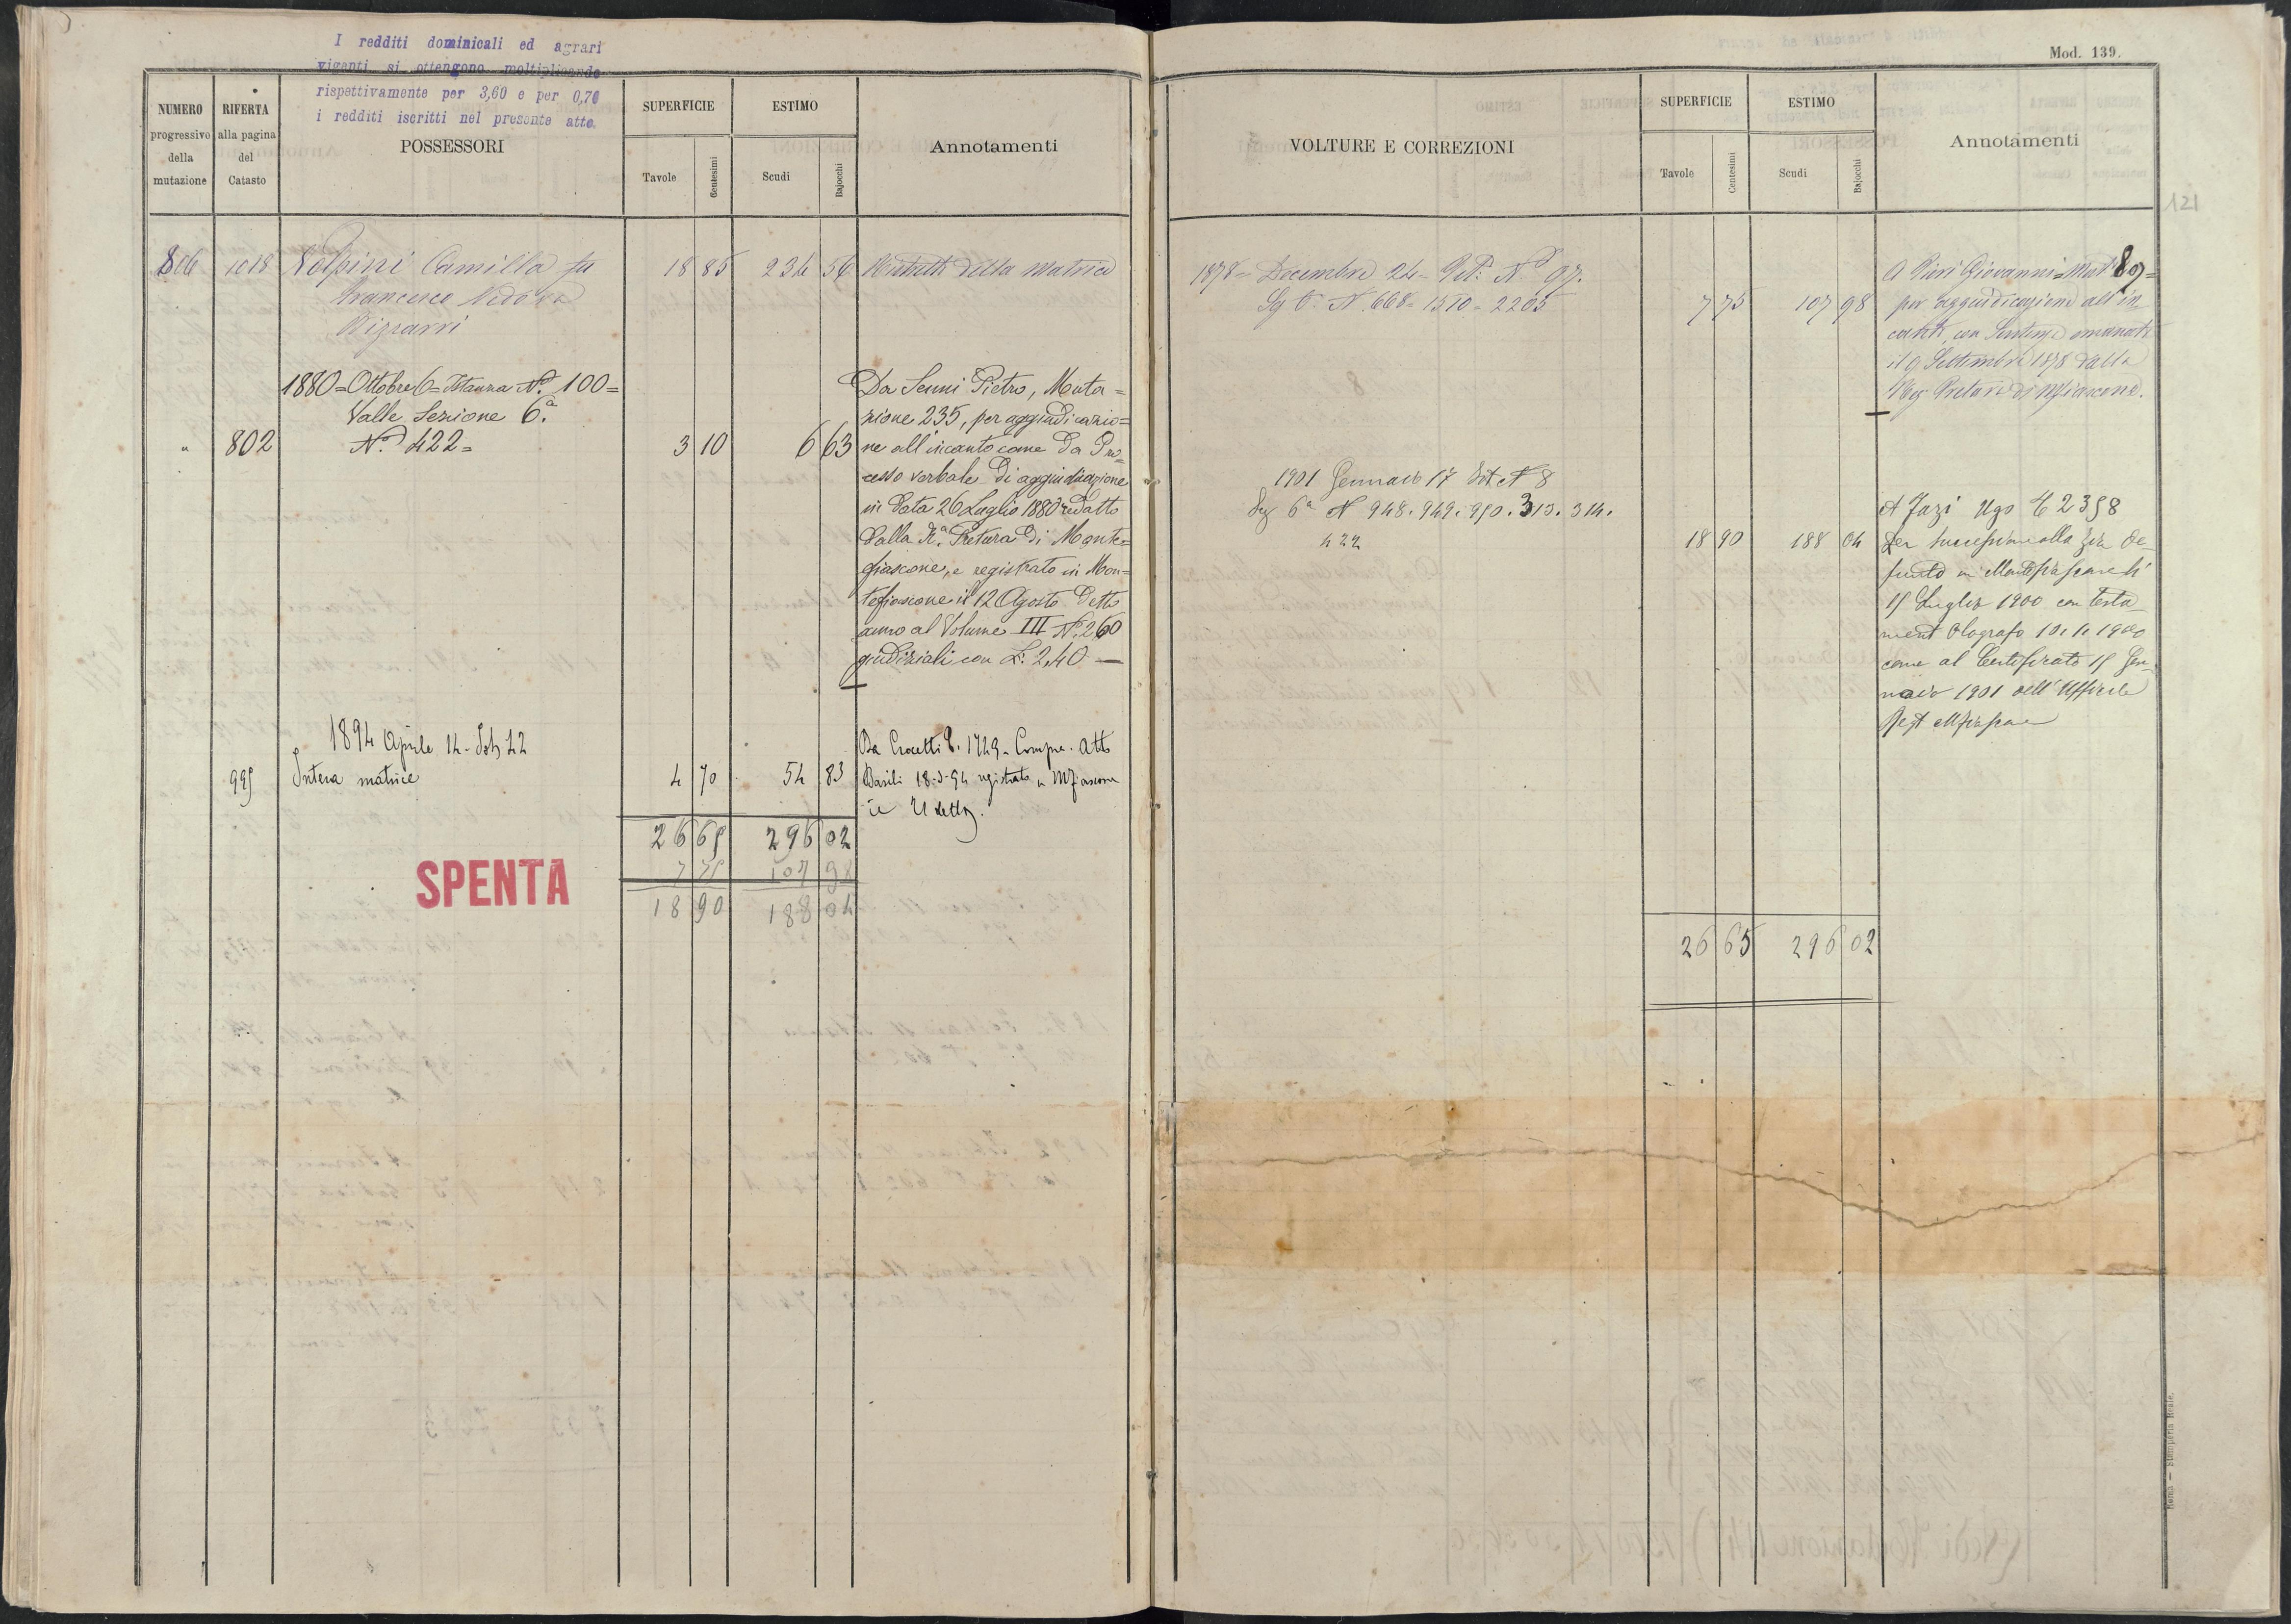 I redditi dominicali ed agrari
viganti si ottengono moltiplicando
rispettivamente per 3,60 e per 0,70
i redditi iscritti nel presente atto.
NUMERO
progressivo
della
mutazione
RIFERTA
alla pagina
del
Catasto
POSSESSORI
SUPERFICIE
Tavole
Centesimi
ESTIMO
Scudi
Bajocchi
Annotamenti
806 1018 Volpini Camilla fu 18 85 234 56 della Matrice
Francesco Vedova
Bizzarri
1880=Ottobre 6=Istanza N.º 100=
Valle Sezione 6.ª
" 802 N.º 422= 3 10 6 63
Da Senni Pietro, Muta=
zione 235, per aggiudicazio=
ne all'incanto come da Pro=
cesso verbale di aggiudicazione
in data 26 Luglio 1880 redatto
dalla R.ª Pretura di Monte=
fiascone, e registrato in Mon=
tefiascone il 12 Agosto detto
anno al Volume III N.º 260
giudiziali con L: 2,40 —
1894 Aprile 14
995 Intera matrice 4 70 54 83
Da Crocetti 1729 Compra. Atto
Basili 18-3-94 registrato a Mfiascone
il 21 detto.
26 65 296 02
7 75 107 98
18 90 188 04
SPENTA
Mod. 139.
VOLTURE E CORREZIONI
SUPERFICIE
Tavole
Centesimi
ESTIMO
Scudi
Bajocchi
Annotamenti
121
1878= Decembre 24= N.º 97.
N. 668= 1510= 2205 7 75 107 98
A Pieri Giovanni=Mut. 809=
per aggiudicazione all'in
canto, con Sentenza emanata
il 9 Settembre 1878 dalla
Reg. Pretura di Mfiascone.
1901 Gennaio 17 N 8
Sez 6ª N 948. 949. 950. 313. 314.
422 18 90 188 04
A Jazi Ugo 2358
per successione alla zia de
funta in Montefiascone li
15 Luglio 1900 con testa
mento Olografo 10. 1. 1900
come al Certificato 15 Gen
naio 1901 dell'Ufficio
Regt Mfiascone
26 65 296 02
Roma — Stamperia Reale.